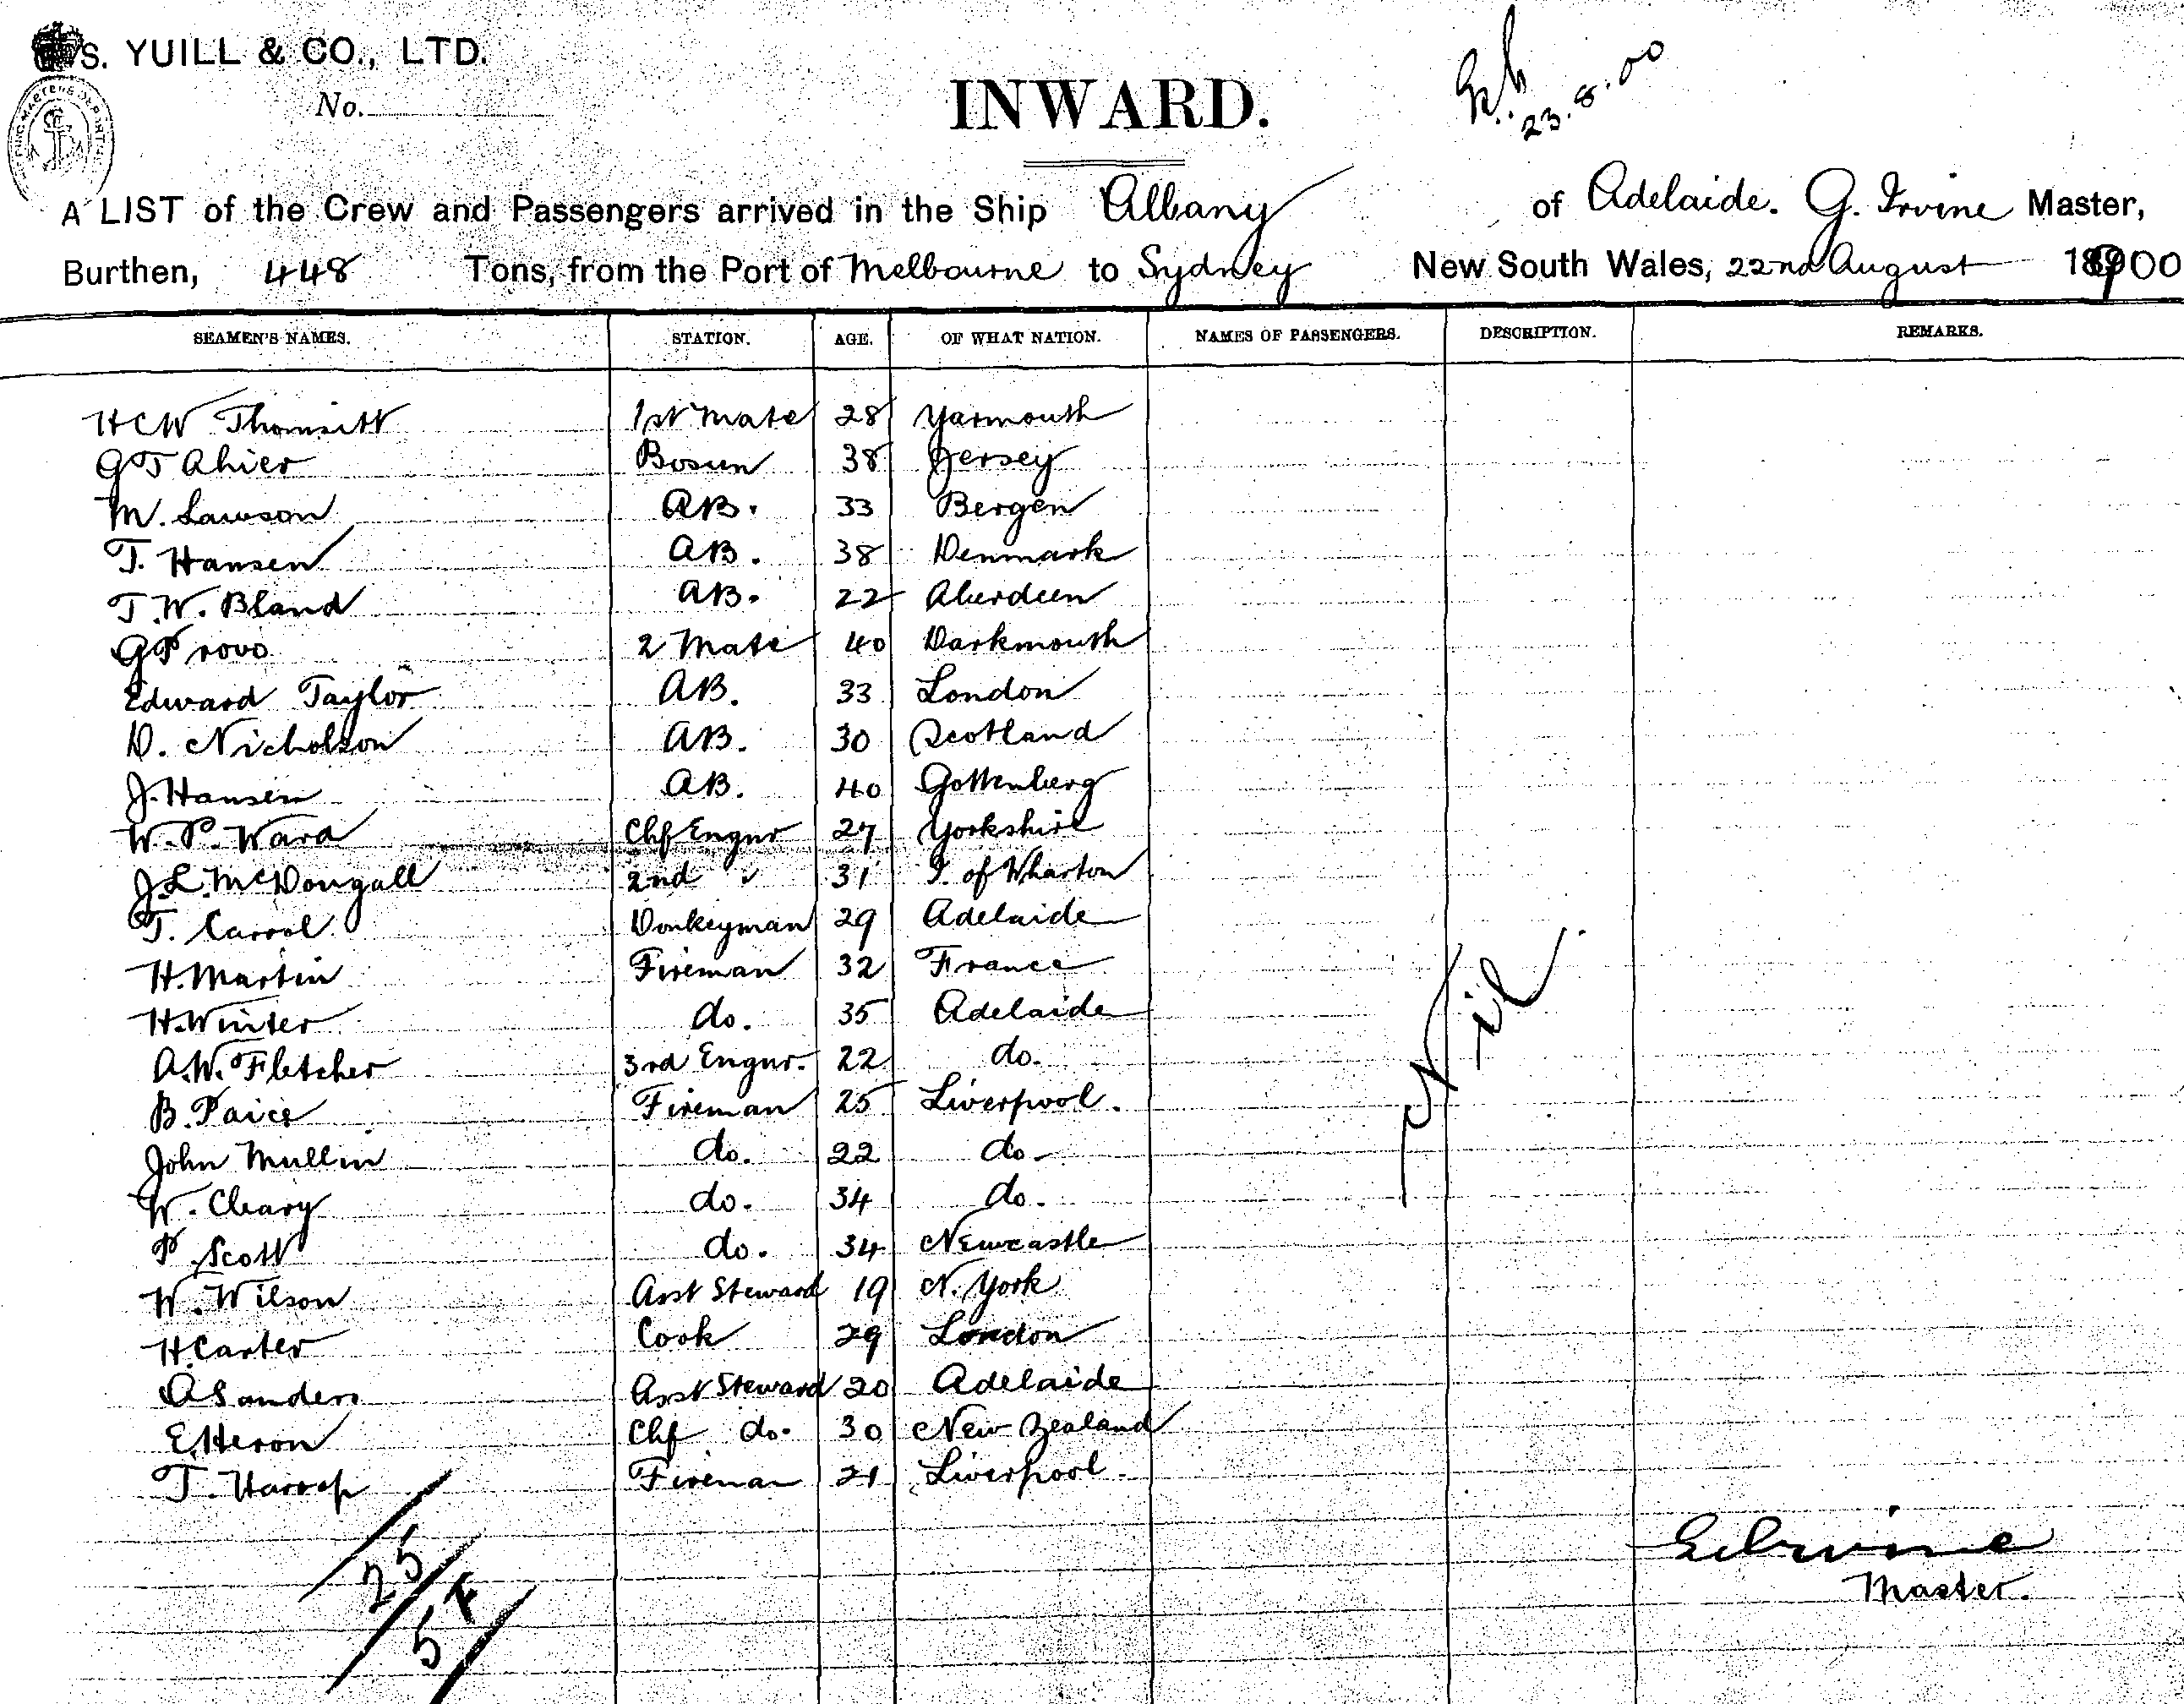 S. YUILL & CO., LTD.
No.
INWARD.
23.8.00
A LIST of the Crew and Passengers arrived in the Ship Albany of Adelaide. G. Irvine Master,
Burthen, 448 Tons, from the Port of Melbourne to Sydney New South Wales, 22nd August 1900
SEAMEN'S NAMES. STATION. AGE. OF WHAT NATION. NAMES OF PASSENGERS. DESCRIPTION. REMARKS.
HCW Thomsitt 1st Mate 28 Yarmouth
G T Ahier Bosun 38 Jersey
M. Lawson AB. 33 Bergen
T. Hansen AB. 38 Denmark
T.W. Bland AB. 22 Aberdeen
G Provo 2 Mate 40 Darkmouth
Edward Taylor AB. 33 London
D. Nicholson AB. 30 Scotland
J. Hansen AB. 40 Gottenberg
W. P. Ward Chf Engnr 27 Yorkshire
J.L. McDougall 2nd " 31 I. of Wharton
T. Carrol Donkeyman 29 Adelaide
H. Martin Fireman 32 France
H. Winter do. 35 Adelaide
A.W. Fletcher 3rd Engnr. 22 do.
B. Paice Fireman 25 Liverpool.
John Mullin do. 22 do.
W. Cleary do. 34 do.
P Scott do. 34 Newcastle
W. Wilson Asst Steward 19 N. York
H. Carter Cook 29 London
A Sanders Asst Steward 20 Adelaide
E. Heron Chf do. 30 New Zealand
T. Harrop Fireman 21 Liverpool
Nil
25
5 F
G Irvine
Master.